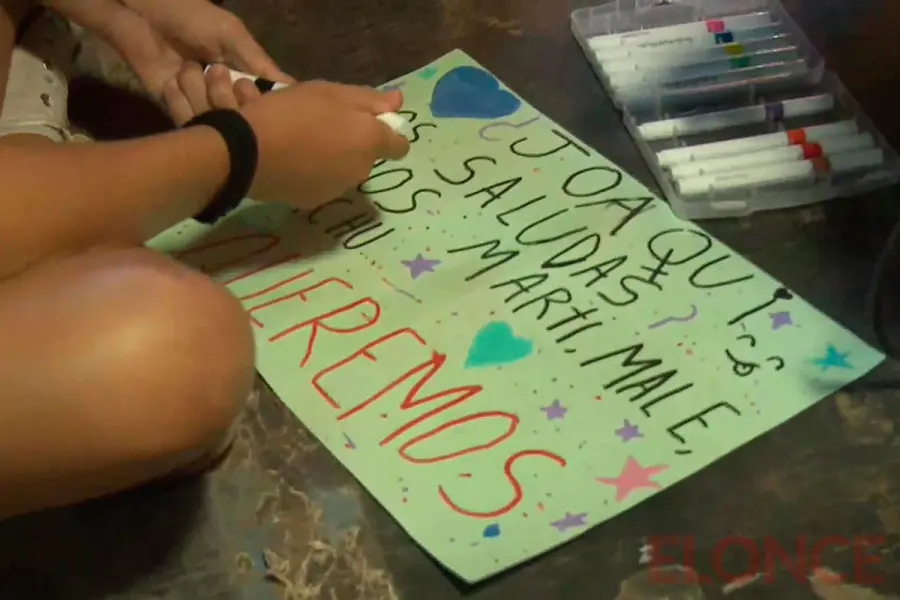 ¿JOAQUI
SALUDAS?
MARTI, MALE,
CHU
QUEREMOS
ELONCE